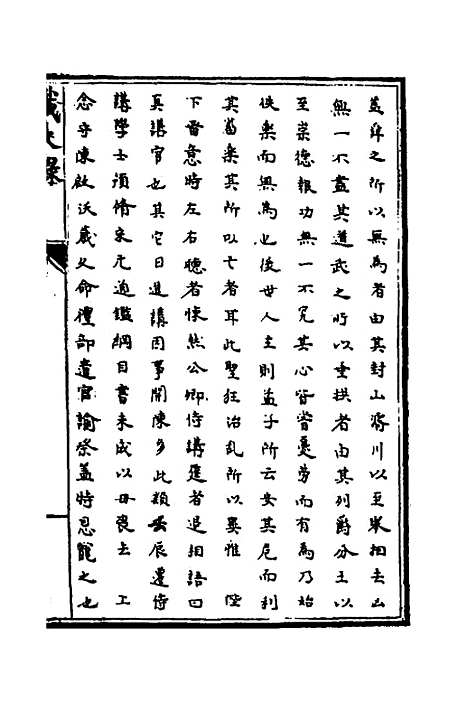 蓋舜之所以無為者由其封山濬川以至舉相去凶
無一不盡其道武之所以垂拱者由其列爵分土以
至崇德報功無一不究其心皆嘗憂勞而有為乃始
佚樂而無為也後世人主則孟子所云安其危而利
其菑樂其所以亡者耳此聖狂治亂所以異惟　陛
下留意時左右聽者悚然公卿侍講筵者退相語曰
真講官也其它日進講因事開陳多此類丙辰遷侍
講學士預修宋元通鑑綱目書未成以母喪去　上
念守陳啟沃歲久命禮部遣官諭祭蓋特恩寵之也